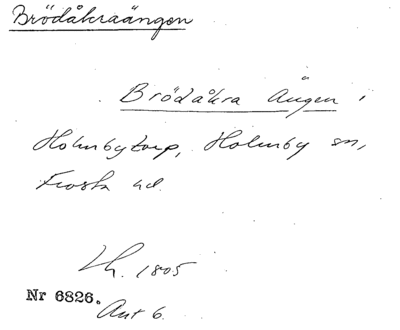 Brödåkraängen
Brödåkra Ängen i
Holmbytorp, Holmby sn,
Frosta hd.
Lh. 1805
Nr 6826.
Akt 6.